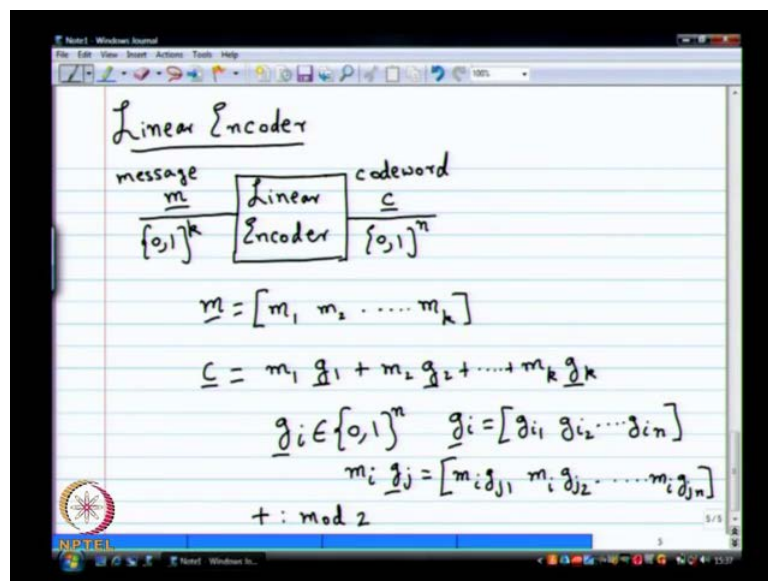 Note1 - Windows Journal
File Edit View Insert Actions Tools Help
100%
Linear Encoder
message codeword
m Linear c
{0,1}^k Encoder {0,1}^n
m = [m₁ m₂ ..... m_k]
c = m₁ g₁ + m₂ g₂ + .... + m_k g_k
g_i ∈ {0,1}^n g_i = [g_i1 g_i2 ... g_in]
m_i g_j = [m_i g_j1 m_i g_j2 ..... m_i g_jn]
+ : mod 2
5/5
5
NPTEL
Note1 - Windows Jo...
15:37